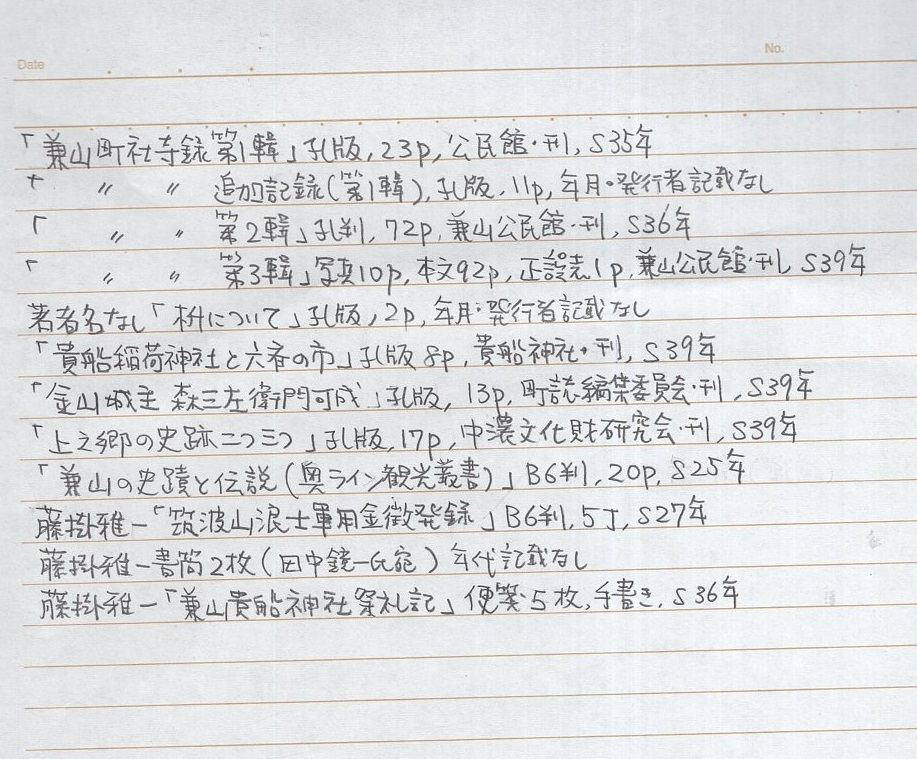 Date
No.
「兼山町社寺録第1輯」孔版,23p,公民館・刊,S35年
「 〃 〃 追加記録(第1輯),孔版,11p,年月・発行者記載なし
「 〃 〃 第2輯」孔判,72p,兼山公民館・刊,S36年
「 〃 〃 第3輯」写真10p,本文92p,正誤表1p,兼山公民館・刊 S39年
著者名なし「枡について」孔版,2p,年月・発行者記載なし
「貴船稲荷神社と六斎の市」孔版 8p,貴船神社・刊,S39年
「金山城主 森三左衛門可成」孔版,13p,町誌編集委員会・刊,S39年
「上之郷の史跡二つ三つ」孔版,17p,中濃文化財研究会・刊,S39年
「兼山の史蹟と伝説(奥ライン観光叢書)」B6判,20p,S25年
藤掛雅一「筑波山浪士軍用金徴発録」B6判,5丁,S27年
藤掛雅一書簡2枚(田中鏡一氏宛)年代記載なし
藤掛雅一「兼山貴船神社祭礼記」便箋・5枚,手書き,S36年